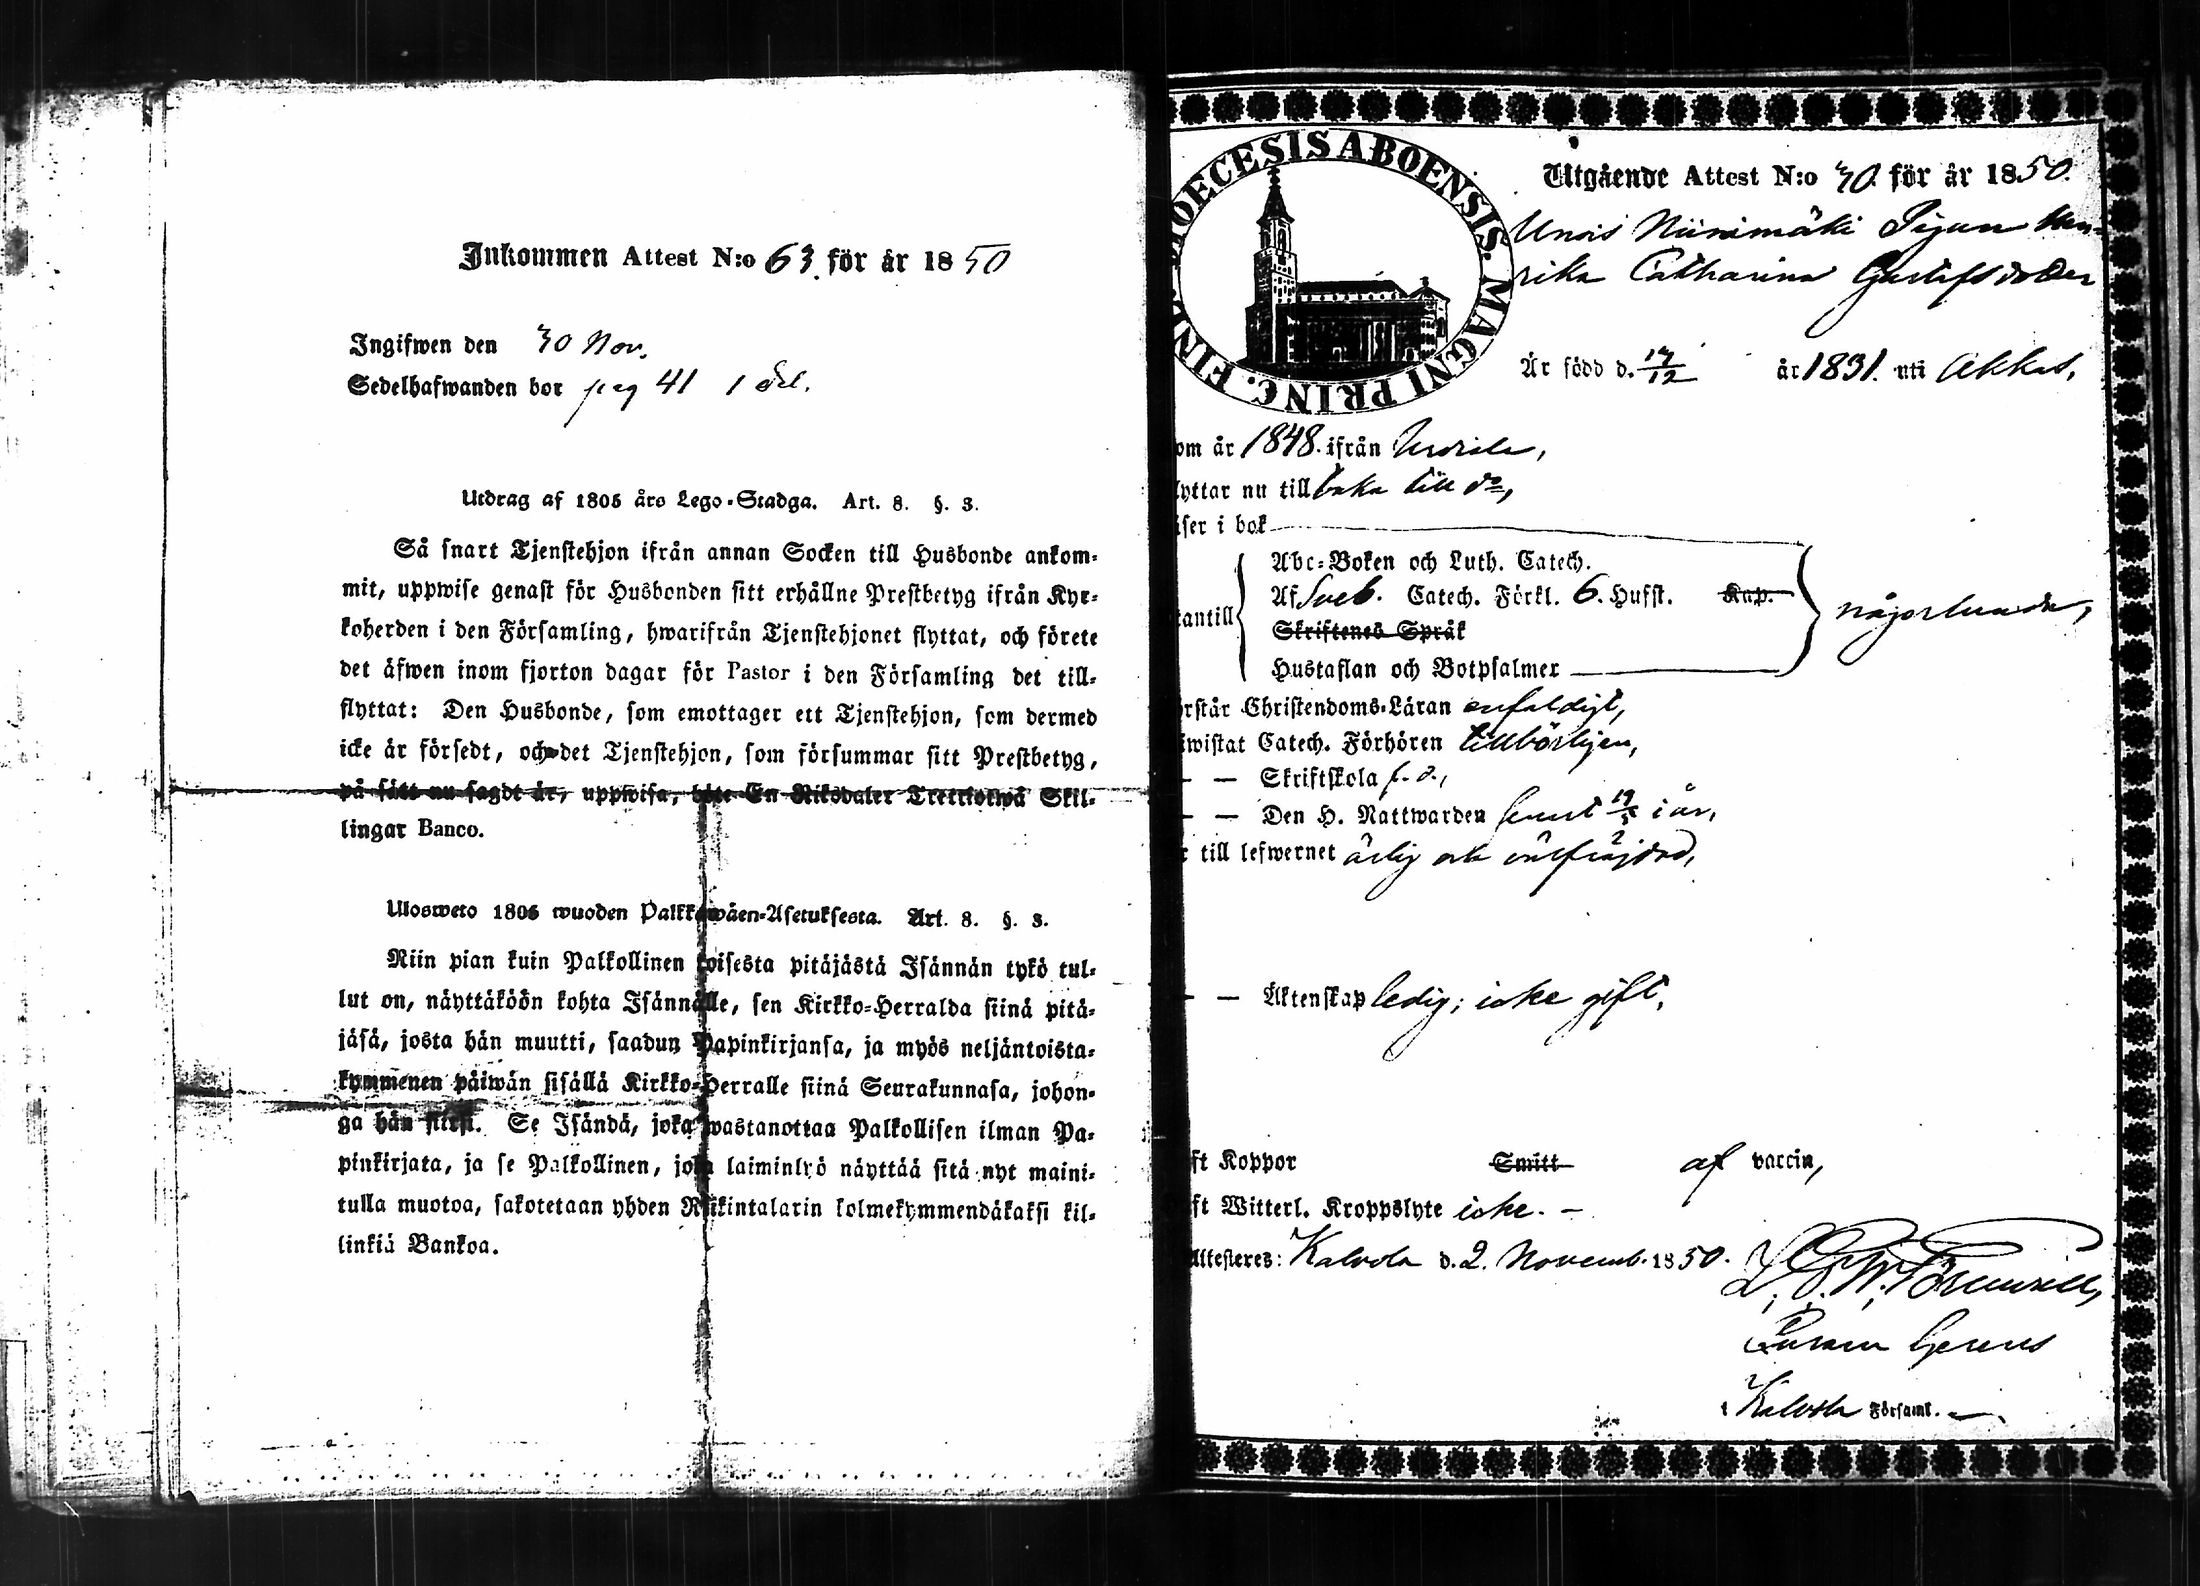 Inkommen Attest N:o 63. för år 1850
Ingifwen den 30 Nov.
Sedelhafwanden bor pag 41 1 del.
Utdrag af 1805 års Lego-Stadga. Art. 8. §. 3.
Så snart Tjenstehjon ifrån annan Socken till Husbonde ankom-
mit, uppwise genast för Husbonden sitt erhållne Prestbetyg ifrån Kyr-
koherden i den Församling, hwarifrån Tjenstehjonet flyttat, och förete
det äfwen inom fjorton dagar för Pastor i den Församling det till-
flyttat: Den Husbonde, som emottager ett Tjenstehjon, som dermed
icke är försedt, och det Tjenstehjon, som försummar sitt Prestbetyg,
på sätt nu sagdt är, uppwisa, böte En Riksdaler Trettiotwå Skil-
lingar Banco.
Ulosweto 1805 wuoden Palkkawäen-Asetuksesta. Art. 8. §. 3.
Niin pian kuin Palkollinen toisesta pitäjästä Isännän tykö tul-
lut on, näyttäköön kohta Isännälle, sen Kirkko-Herralda siinä pitä-
jäsä, josta hän muutti, saadun Papinkirjansa, ja myös neljäntoista-
kymmenen päiwän sisällä Kirkko-Herralle siinä Seurakunnasa, johon-
ga hän siirsi. Se Isändä, joka wastanottaa Palkollisen ilman Pa-
pinkirjata, ja se Palkollinen, joka laiminlyö näyttää sitä nyt maini-
tulla muotoa, sakotetaan yhden Riikintalarin kolmekymmendäkaksi kil-
linkiä Bankoa.
DIOECESIS ABOENSIS. MAGNI PRINC. FINL.
Utgående Attest N:o 30. för år 1850.
Unois Niinimäki Pigan Hen-
rika Catharina Gustafsdotter
Är född d. 17/12 år 1831. uti Akkas,
om år 1848. ifrån Urdiala,
lyttar nu till baka till do,
äser i bok
Abc-Boken och Luth. Catech.
Af Sveb. Catech. Förkl. 6. Hufst. Kap.
tantill
Skriftenes Språk
någorlunda,
Hustaflan och Botpsalmer
rstår Christendoms-Läran enfaldigt,
iwistat Catech. Förhören tillbörligen,
— — Skriftskola
— — Den H. Nattwarden senast 19/5 i år,
r till lefwernet ärlig och välfräjdad,
— — Äktenskap ledig; icke gift,
ft Koppor Smitt af vaccin,
ft Witterl. Kroppslyte icke. —
Attesteres: Kalvola d. 2. Novemb. 1850.
Kalvola Församl.